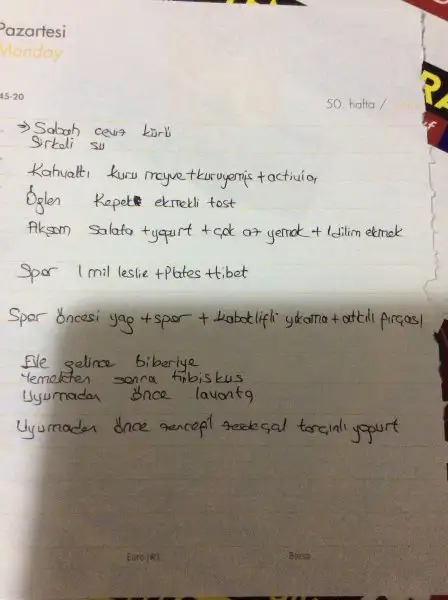 Pazartesi
Monday
45-20
50. hafta /
→ Sabah ceviz kürü
Sirkeli su
Kahvaltı kuru meyve+kuruyemiş + activia
Öğlen Kepek ekmekli tost
Akşam Salata +yoğurt + çok az yemek + 1 dilim ekmek
Spor 1 mil leslie +Plates +tibet
Spor öncesi yağ +spor + kabaklifli yıkama + atkılı fırçası
Eve gelince biberiye
Yemekten sonra hibiskus
Uyumadan önce lavanta
Uyumadan önce zencefil zerdeçal tarçınlı yoğurt
Borsa